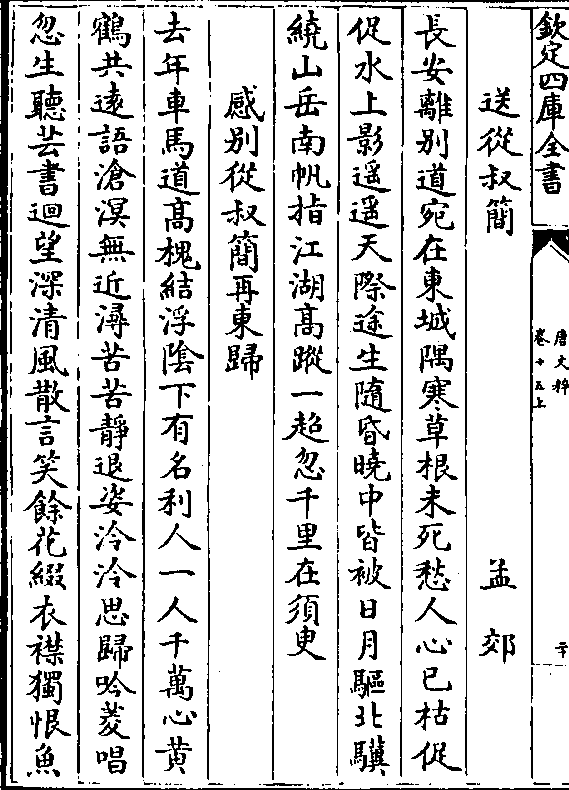 欽定四庫全書
唐文粹
卷十五上
二十
送從叔簡 孟郊
長安離別道宛在東城隅寒草根未死愁人心已枯促
促水上影遥遥天際途生隨昏曉中皆被日月驅北驥
繞山岳南帆指江湖高蹤一超忽千里在須臾
感别從叔簡再東歸
去年車馬道高槐結浮陰下有名利人一人千萬心黄
鶴共逺語滄溟無近潯苦苦静退姿泠泠思歸吟菱唱
忽生聽芸書迴望深清風散言笑餘花綴衣襟獨恨魚